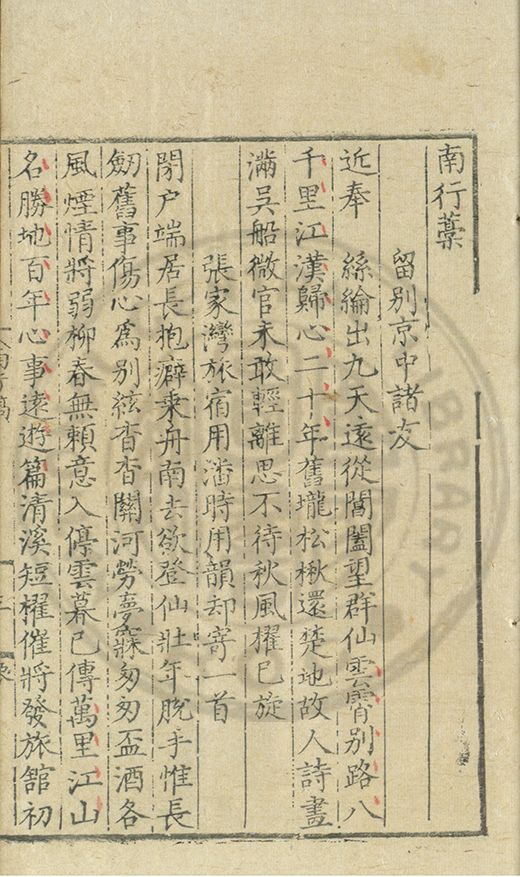 南行藁
留别京中諸友
近奉 絲綸出九天遠從閶闔望群仙雲霄别路八
千里江漢歸心二十年舊壠松楸還楚地故人詩畫
滿吳船微官未敢輕離思不待秋風擢已旋
張家灣旅宿用潘時用韻却寄一首
閉户端居長抱癖乗舟南去欲登仙壯年脫手惟長
劒舊事傷心爲别絃杳杳關河勞夢寐匆匆盃酒各
風煙情將弱柳春無賴意入停雲暮已傳萬里江山
名勝地百年心事遠遊篇清溪短櫂催將發旅舘初